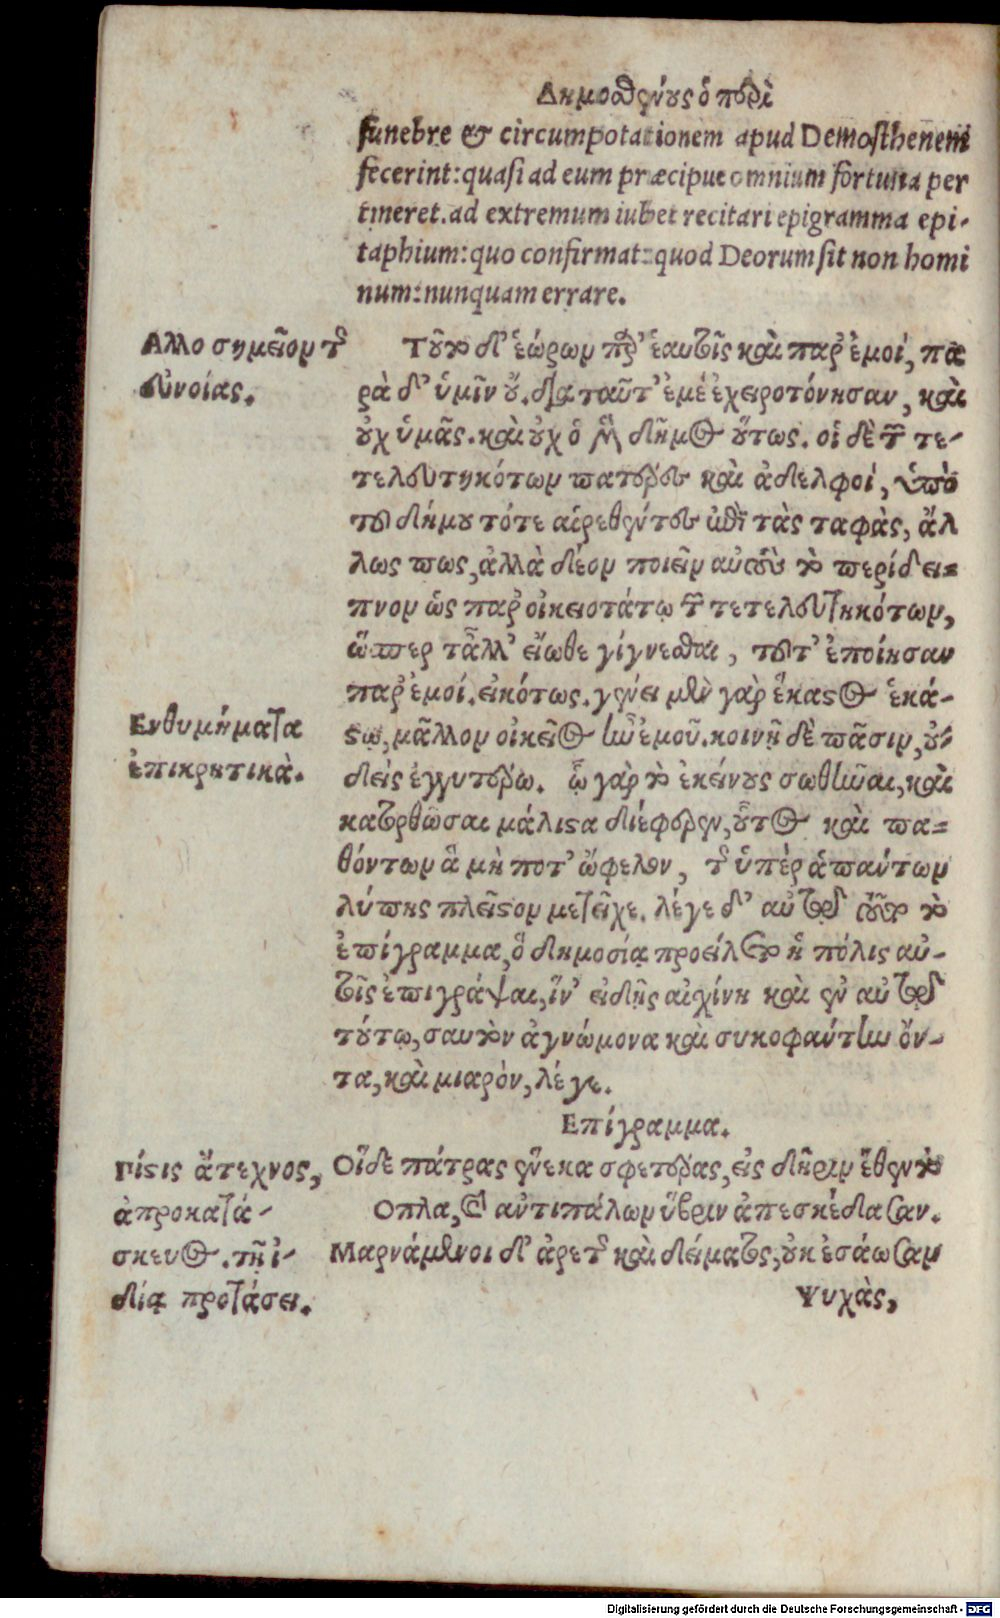 Δημοσθένους ὁ περὶ
funebre & circumpotationem apud Demosthenem
fecerint: quasi ad eum præcipue omnium fortuna per
tineret. ad extremum iubet recitari epigramma epi-
taphium: quo confirmat: quod Deorum sit non homi
num: nunquam errare.
Αλλο σημεῖον τῆς
εὐνοίας.
Τοῦτο δ' ἑώρων παρ' ἑαυτοῖς καὶ παρ' ἐμοί, πα
ρὰ δ' ὑμῖν οὔ. διὰ ταῦτ' ἐμὲ ἐχειροτόνησαν, καὶ
οὐχ ὑμᾶς. καὶ οὐχ ὁ μὲν δῆμος οὕτως. οἱ δὲ τῶν τε-
τελευτηκότων πατέρες καὶ ἀδελφοί, ὑπὸ
τοῦ δήμου τότε αἱρεθέντες ἐπὶ τὰς ταφὰς, ἄλ
λως πως, ἀλλὰ δέον ποιεῖν αὐτοὺς τὸ περίδει-
πνον ὡς παρ' οἰκειοτάτῳ τῶν τετελευτηκότων,
ὥσπερ τἆλλ' εἴωθε γίγνεσθαι, τοῦτ' ἐποίησαν
παρ' ἐμοί. εἰκότως. γένει μὲν γὰρ ἕκαστος ἑκά-
στῳ, μᾶλλον οἰκεῖος ἦν ἐμοῦ. κοινῇ δὲ πᾶσιν, οὐ-
δεὶς ἐγγυτέρω. ᾧ γὰρ τὸ ἐκείνους σωθῆναι, καὶ
Ενθυμήματα
ἐπικριτικὰ.
κατορθῶσαι μάλιστα διέφερεν, οὗτος καὶ πα-
θόντων ἃ μή ποτ' ὤφελον, τῆς ὑπὲρ ἁπάντων
λύπης πλεῖστον μετεῖχε. λέγε δ' αὐτῷ τουτὶ τὸ
ἐπίγραμμα, ὃ δημοσίᾳ προείλετο ἡ πόλις αὐ-
τοῖς ἐπιγράψαι, ἵν' εἰδῇς αἰσχίνη καὶ ἐν αὐτῷ
τούτῳ, σαυτὸν ἀγνώμονα καὶ συκοφάντην ὄν-
τα, καὶ μιαρόν, λέγε.
Επίγραμμα.
Πίστις ἄτεχνος,
ἀπροκατά-
σκευος. τῇ ἰ-
δίᾳ προτάσει.
Οἵδε πάτρας ἕνεκα σφετέρας, εἰς δῆριν ἔθεντο
Οπλα, καὶ ἀντιπάλων ὕβριν ἀπεσκέδασαν.
Μαρνάμενοι δ' ἀρετῆς καὶ δείματος, οὐκ ἐσάωσαν
Ψυχὰς,
Digitalisierung gefördert durch die Deutsche Forschungsgemeinschaft - DFG